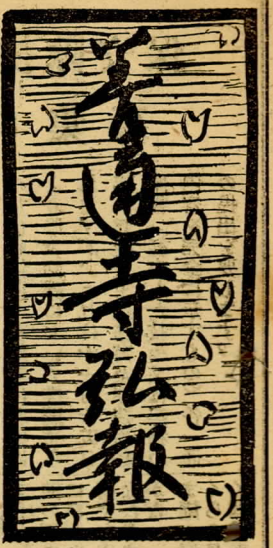 善通寺弘報